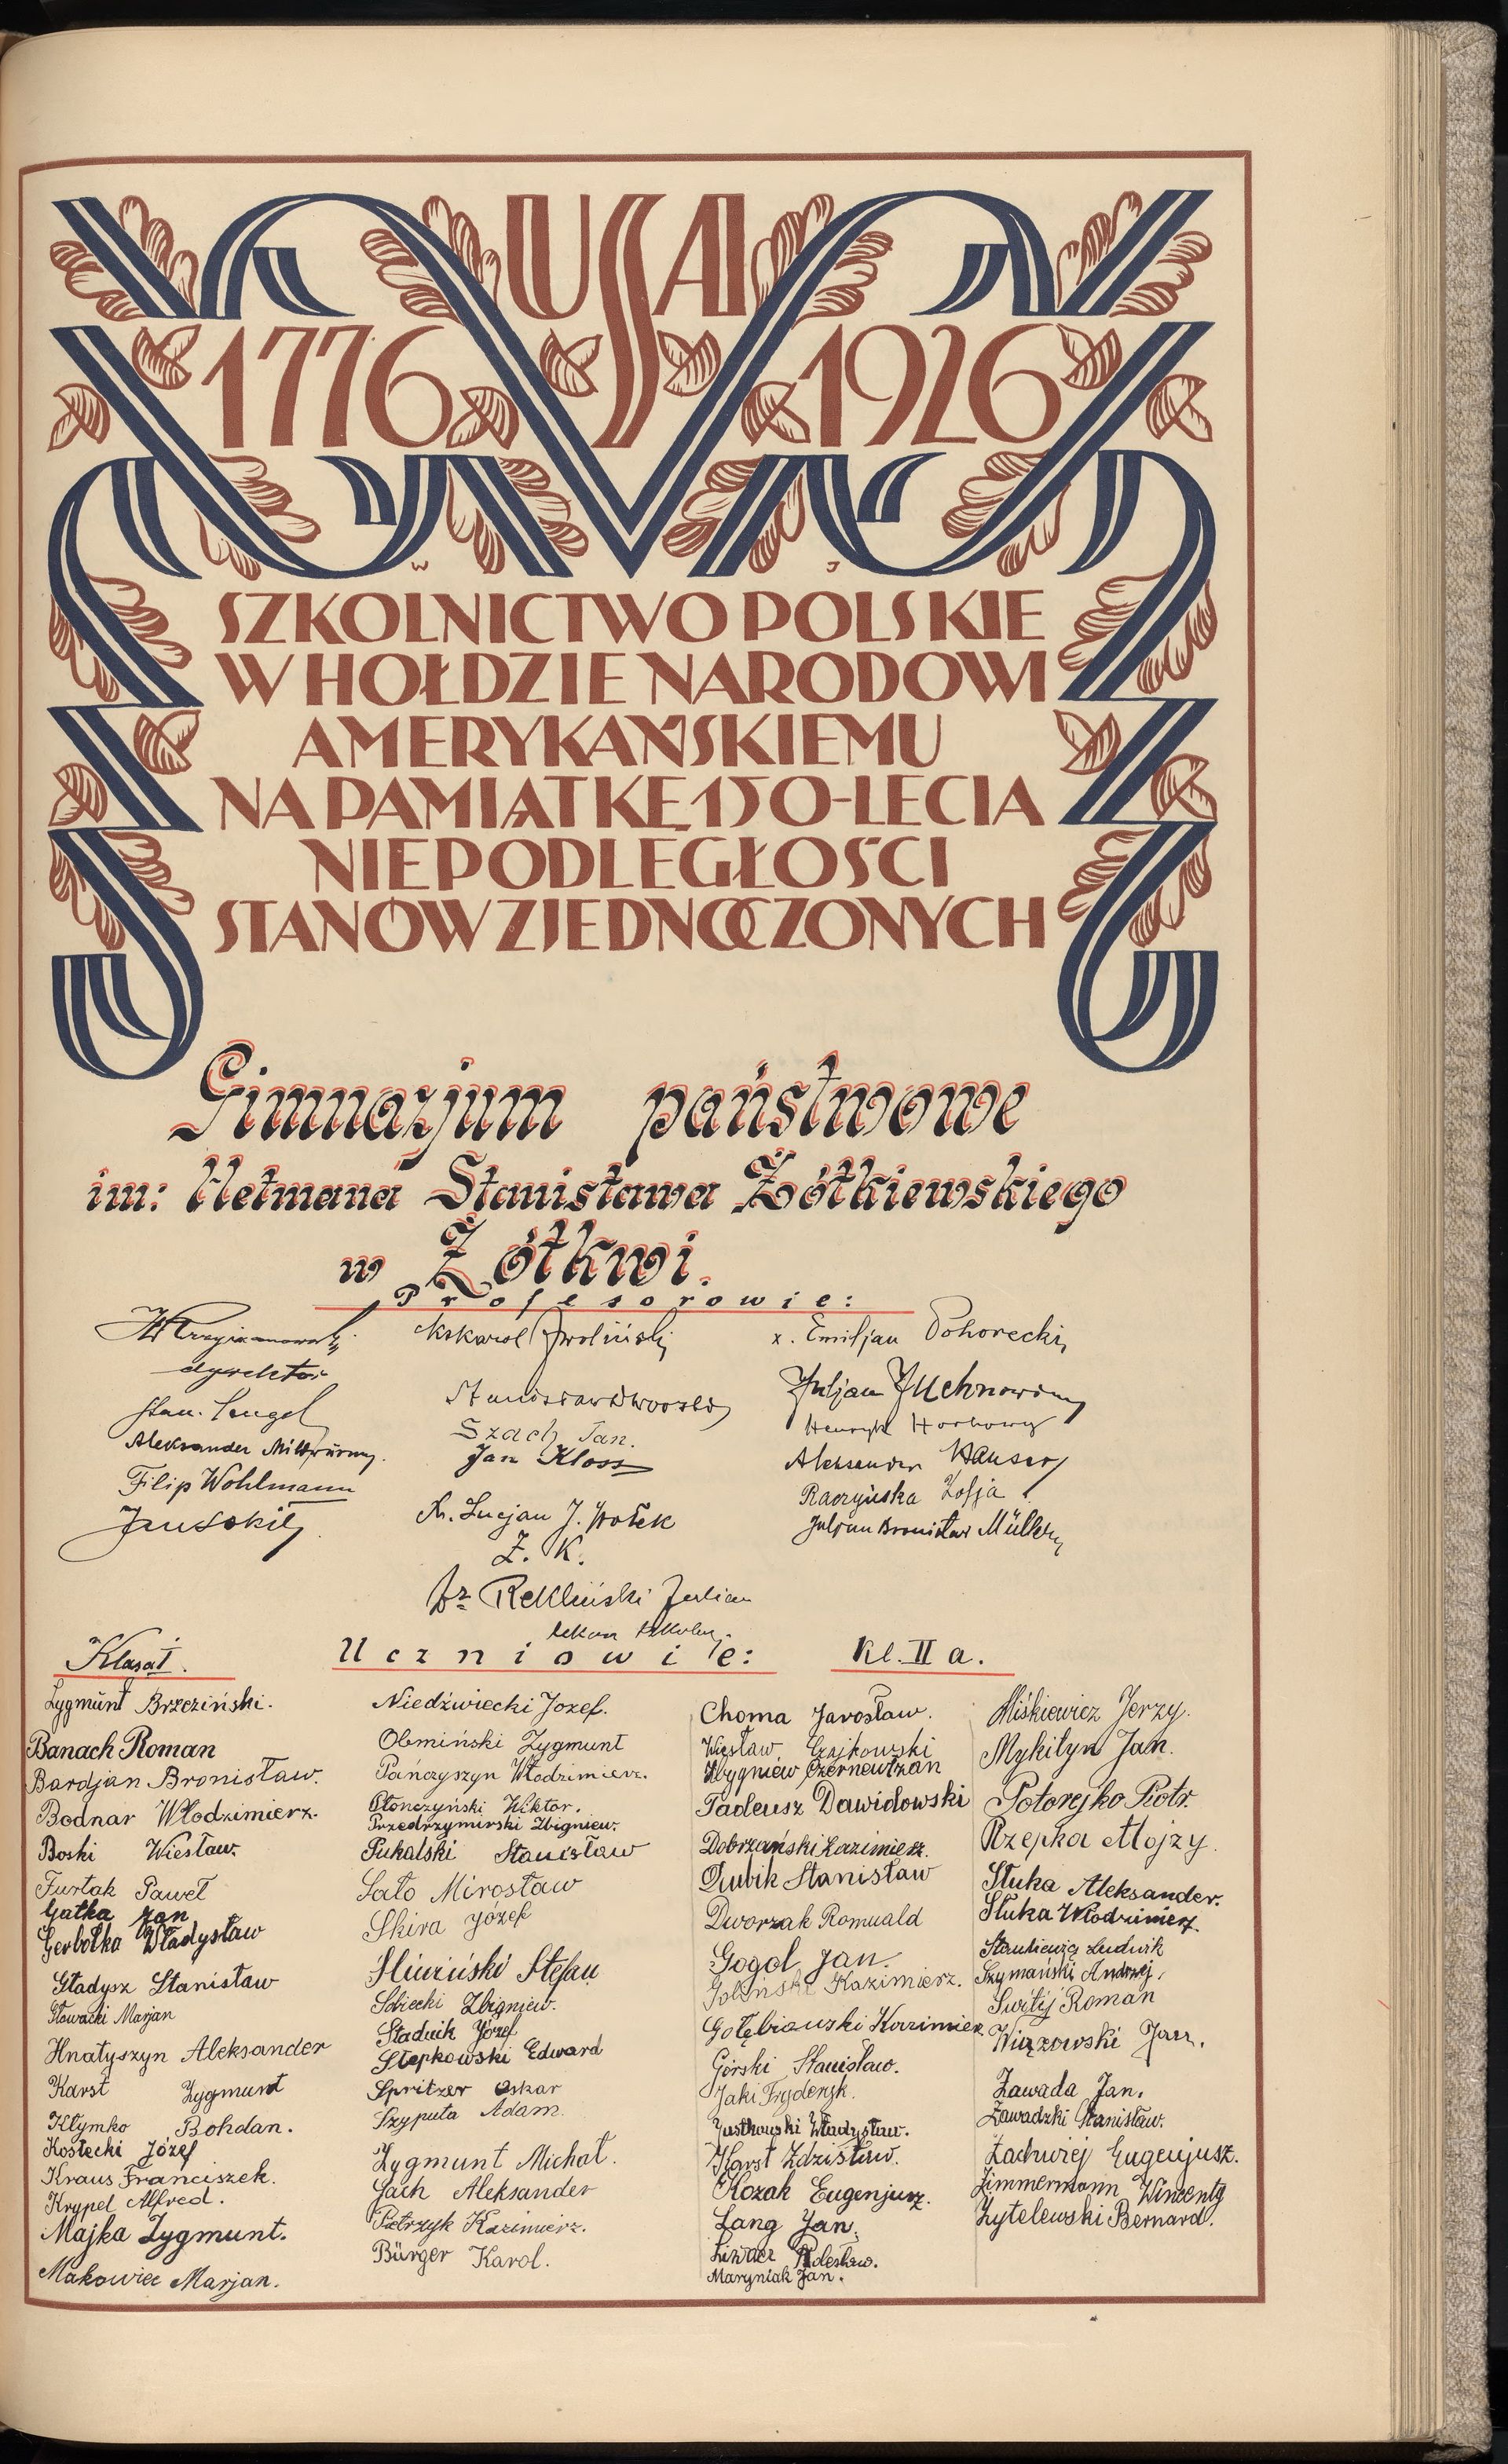 USA
1776 1926
W J
SZKOLNICTWO POLSKIE
W HOŁDZIE NARODOWI
AMERYKAŃSKIEMU
NA PAMIĄTKĘ 150-LECIA
NIEPODLEGŁOŚCI
STANÓW ZJEDNOCZONYCH
Gimnazjum państwowe
im: Hetmana Stanisława Żółkiewskiego
w Żółkwi.
Profesorowie:
dyrektor
Stan. Lengel
Aleksander
Filip Wohlmann
Karol Zwoliński
Stanisław Dworski
Szach Jan.
Jan Kloss
Lucjan J.
Z. K.
Dr Rekliński Julian
lekarz szkolny.
x. Emiljan Pohorecki
Juljan Juchnowicz
Henryk Horbowy
Aleksander Hauser
Raczyńska Zofja
Juljan Bronisław Müller
Klasa I.
Uczniowie:
Kl. II a.
Zygmunt Brzeziński.
Banach Roman
Bardjan Bronisław.
Bodnar Włodzimierz.
Boski Wiesław.
Furtak Paweł
Gałka Jan
Gerbotka Władysław
Gładysz Stanisław
Głowacki Marjan
Hnatyszyn Aleksander
Karst Zygmunt
Kłymko Bohdan.
Kostecki Józef
Kraus Franciszek.
Krypel Alfred.
Majka Zygmunt.
Makowiec Marjan.
Niedźwiecki Józef.
Obmiński Zygmunt
Pańczyszyn Włodzimierz.
Płonczyński Wiktor.
Przedrzymirski Zbigniew.
Pukalski Stanisław
Sało Mirosław
Skira Józef
Śliwiński Stefan
Sobiecki Zbigniew.
Stadnik Józef
Stepkowski Edward
Spritzer Oskar
Szyputa Adam.
Zygmunt Michał.
Gach Aleksander
Patrzyk Kazimierz.
Bürger Karol.
Choma Jarosław.
Więsław Czajkowski
Zbygniew Czerneutzan
Tadeusz Dawidowski
Dobrzański Kazimierz.
Dubik Stanisław
Dworzak Romuald
Gogol Jan.
Goliński Kazimierz.
Gołębiowski Kazimierz
Górski Stanisław.
Jaki Fryderyk.
Justkowski Władysław.
Karst Zdzisław.
Kozak Eugenjusz.
Lang Jan.
Liwacz Bolesław.
Maryniak Jan.
Miśkiewicz Jerzy.
Mykityn Jan.
Potorejko Piotr.
Rzepka Alojzy.
Stuka Aleksander.
Stuka Włodzimierz.
Stankiewicz Ludwik
Szymański Andrzej.
Switij Roman
Wiązowski Jan.
Zawada Jan.
Zawadzki Stanisław.
Zachwiej Eugenjusz.
Zimmermann Wincenty
Zytelewski Bernard.